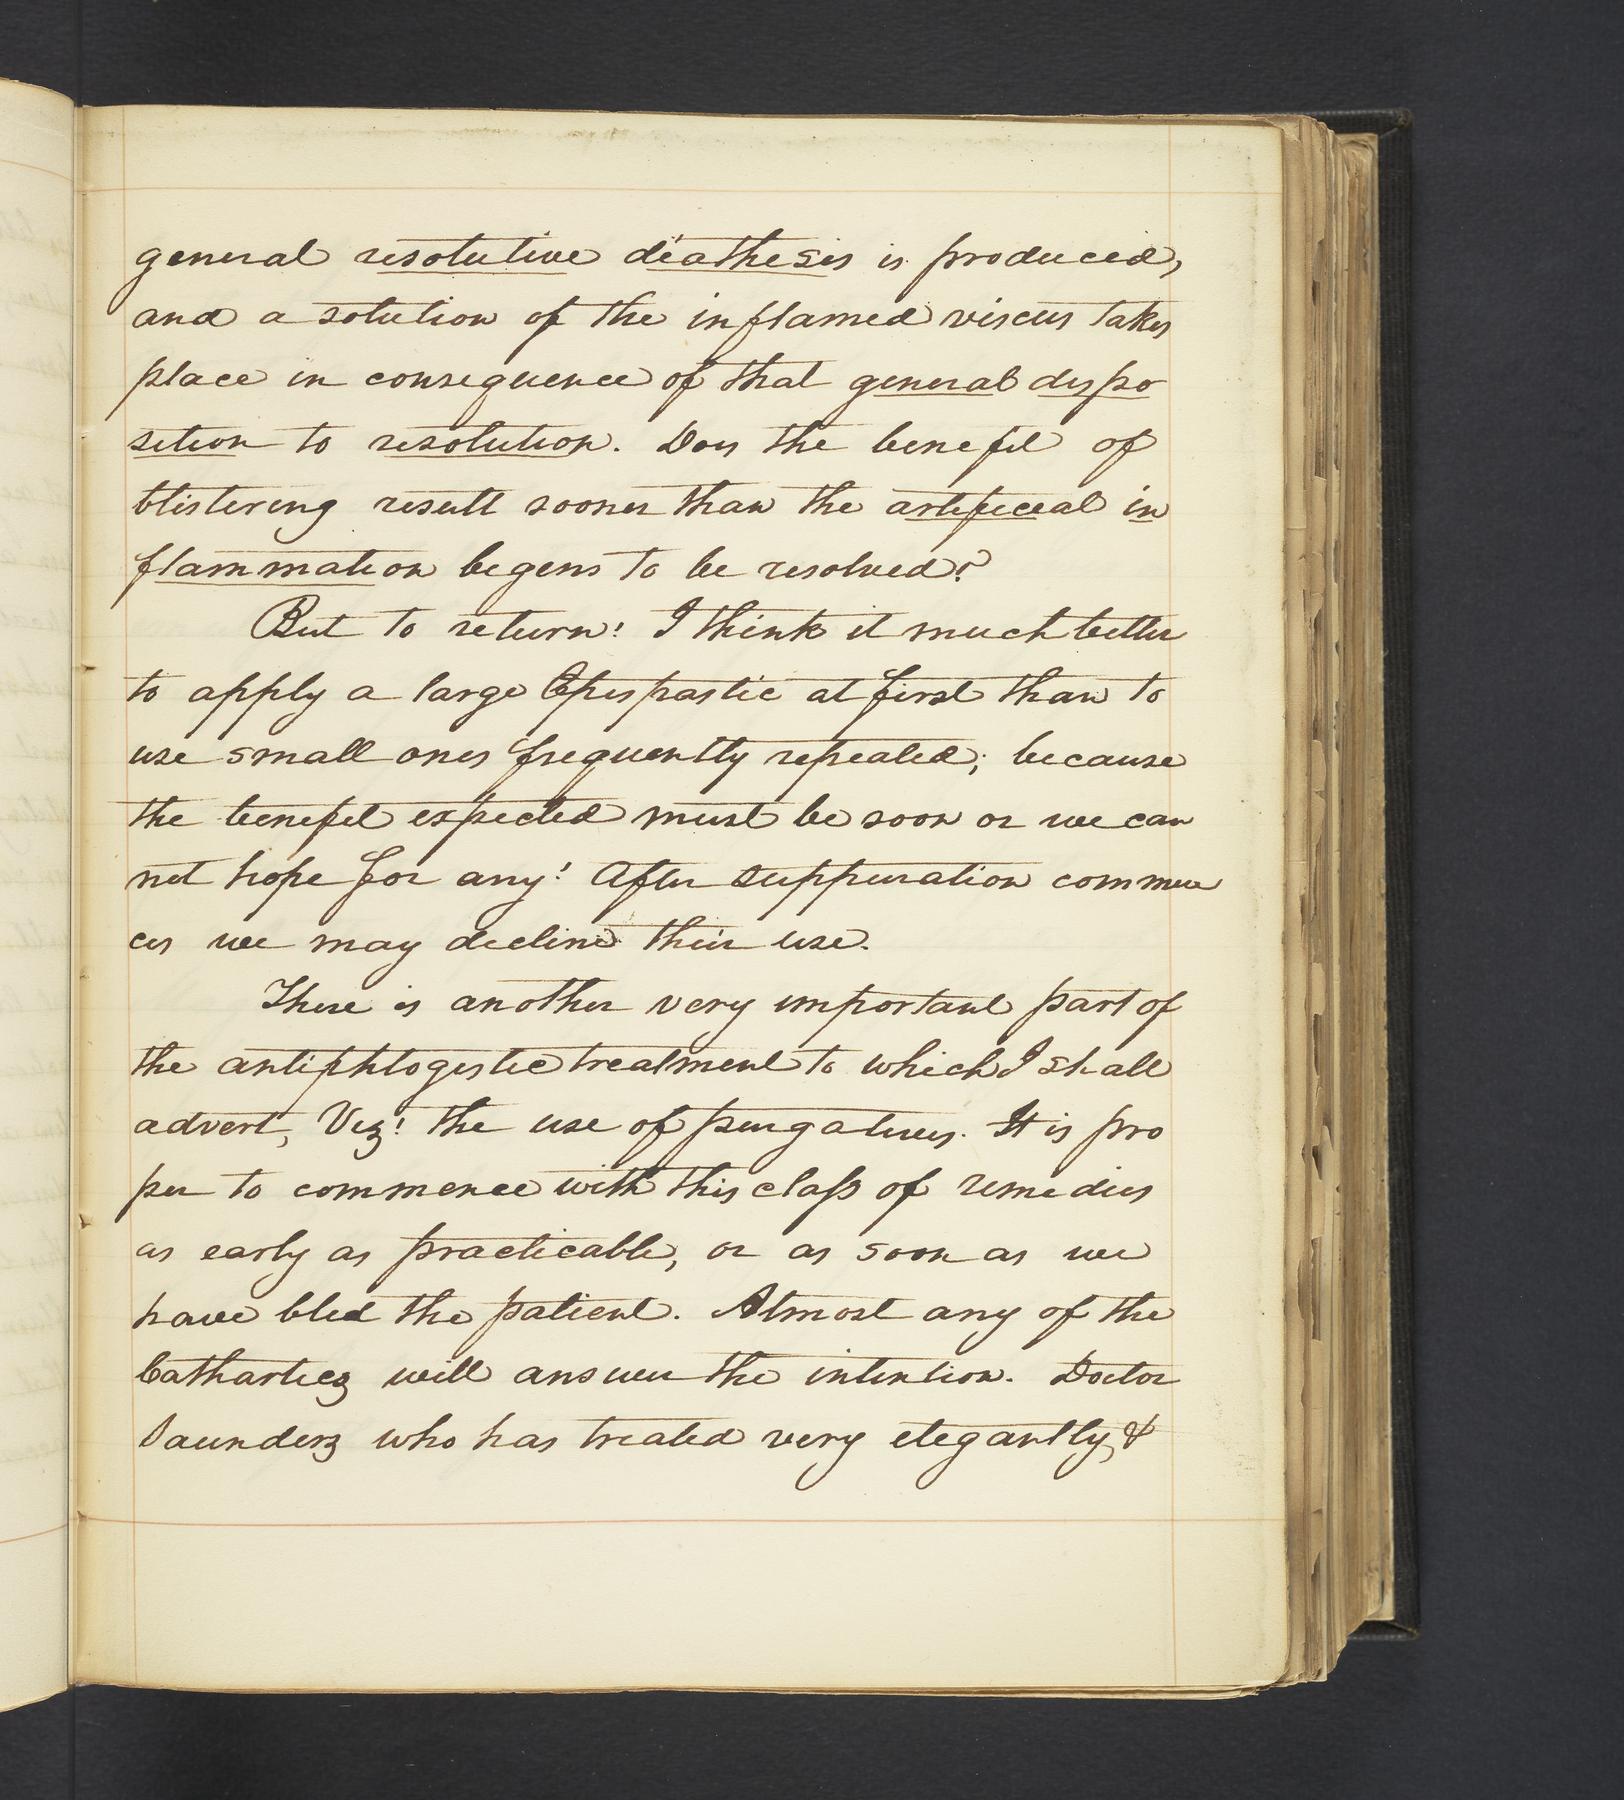 general resolutive diathesis is produced,
and a solution of the inflamed viscus takes
place in consequence of that general dispo
sition to resolution. Does the benefit of
blistering result sooner than the artificial in
flammation begins to be resolved?
But to return! I think it much better
to apply a large Epispastic at first than to
use small ones frequently repeated; because
the benefit expected must be soon or we can
not hope for any! After suppuration commen
ces we may decline their use.
There is another very important part of
the antiphlogistic treatment to which I shall
advert, Viz! the use of purgatives. It is pro
per to commence with this class of remedies
as early as practicable, or as soon as we
have bled the patient. Almost any of the
Cathartics will answer the intention. Doctor
Saunders who has treated very elegantly, &